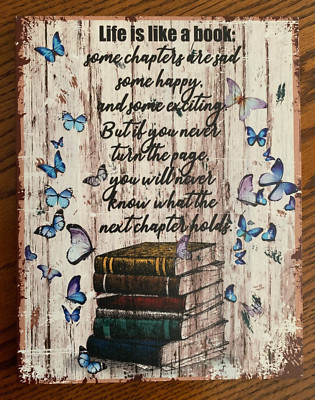 Life is like a book:
some chapters are sad
some happy.
and some exciting.
But if you never
turn the page,
you will never
know what the
next chapter holds.